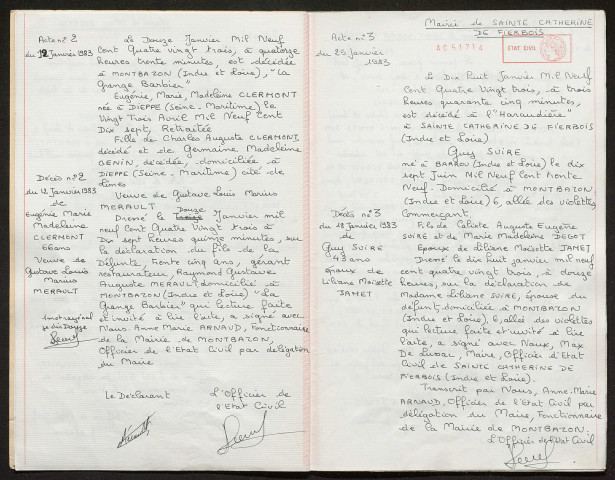 Acte n° 2
du 12 Janvier 1983
Décès n° 2
du 12 Janvier 1983
de
Eugénie Marie
Madeleine
CLERMONT
66 ans
Veuve de
Gustave Louis
Marius
MERAULT
Le Douze Janvier Mil Neuf
Cent Quatre vingt trois, à quatorze
heures trente minutes, est décédée
à MONTBAZON (Indre et Loire), "La
Grange Barbier"
Eugénie, Marie, Madeleine CLERMONT
née à DIEPPE (Seine-Maritime) le
Vingt Trois Avril Mil Neuf Cent
Dix sept, Retraitée
Fille de Charles Auguste CLERMONT,
décédé et de Germaine Madeleine
GENIN, décédée, domiciliée à
DIEPPE (Seine-Maritime) cité de
Limes
Veuve de Gustave Louis Marius
MERAULT
Douze
Dressé le Janvier mil
neuf Cent Quatre Vingt trois à
Dix sept heures quinze minutes, sur
la déclaration du fils de la
Défunte, trente cinq ans, gérant
restaurateur, Raymond Gustave
Auguste MERAULT domicilié à
MONTBAZON (Indre et Loire) "La
Grange Barbier" qui lecture faite
et invité à lire l'acte, a signé avec
Nous. Anne Marie ARNAUD, Fonctionnaire
de la Mairie de MONTBAZON,
Officier de l'Etat Civil par délégation
du Maire
Le Déclarant
L'Officier de
l'Etat Civil
Mairie de SAINTE CATHERINE
DE FIERBOIS
AC51714
ETAT CIVIL
Acte n° 3
du 25 Janvier
1983
Décès n° 3
du 18 Janvier 1983
de
Guy SUIRE
époux de
Liliane Moisette
JAMET
Le Dix Huit Janvier Mil Neuf
Cent Quatre Vingt trois, à trois
heures quarante cinq minutes,
est décédé à l'"Haraudière"
à SAINTE CATHERINE DE FIERBOIS
(Indre et Loire)
Guy SUIRE
né à BARROU (Indre et Loire) le dix
sept Juin Mil Neuf Cent trente
Neuf. Domicilié à MONTBAZON
(Indre et Loire) 6, allée des violettes
Commerçant.
Fils de Calixte Auguste Eugène
SUIRE et de Marie Madeleine DEGOT
Epoux de Liliane Moisette JAMET
Dressé le dix huit janvier mil neuf
cent quatre vingt trois, à douze
heures, sur la déclaration de
Madame Liliane SUIRE, épouse du
défunt, domiciliée à MONTBAZON
(Indre et Loire), 6, allée des violettes
qui lecture faite et invité à lire
l'acte, a signé avec Nous, Max
De Lussac, Maire, Officier d'Etat
Civil de SAINTE CATHERINE DE
FIERBOIS (Indre et Loire).
Transcrit par Nous, Anne-Marie
ARNAUD, Officier de l'Etat Civil par
délégation du Maire, Fonctionnaire
de la Mairie de MONTBAZON.
L'Officier de l'Etat Civil